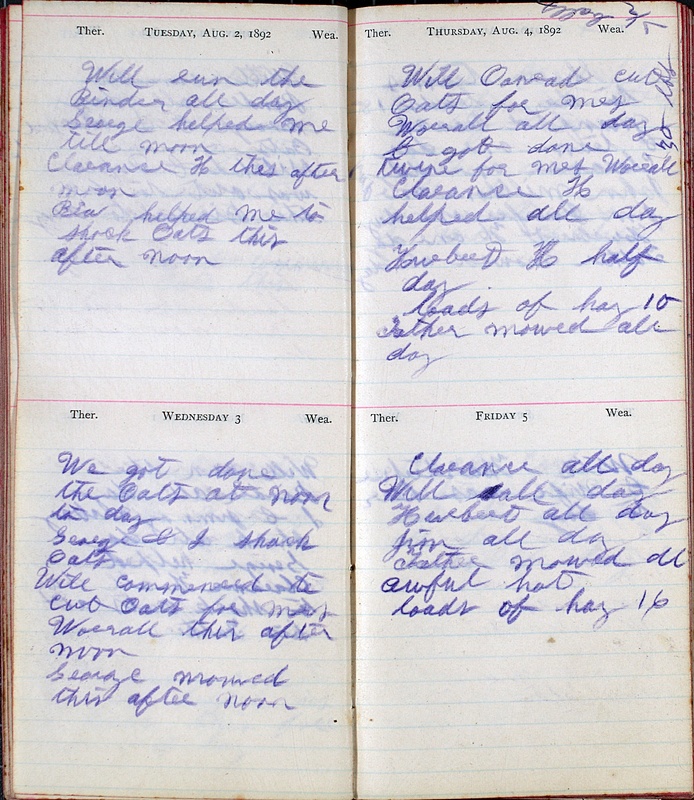 Ther. TUESDAY, AUG. 2, 1892 Wea.
Will run the
Binder all day
George helped me
till noon
Clearance H this after
noon
helped me to
shock Oats this
after noon
Ther. WEDNESDAY 3 Wea.
We got done
the Oats at noon
to day
George & I shock
Oats
Will commenced to
cut Oats for mrs
Worrall this after
noon
George mowed
this after noon
Ther. THURSDAY, AUG. 4, 1892 Wea.
Will Conrad cut
Oats for mrs
Worrall all day
& got done
twine for mrs Worrall
30 lbs
Clearance H
helped all day
Hurbert H half
day
loads of hay 10
Father mowed all
day
Ther. FRIDAY 5 Wea.
Clearance all day
Will all day
Hurbert all day
Jim all day
Father mowed all
awful hot
loads of hay 16